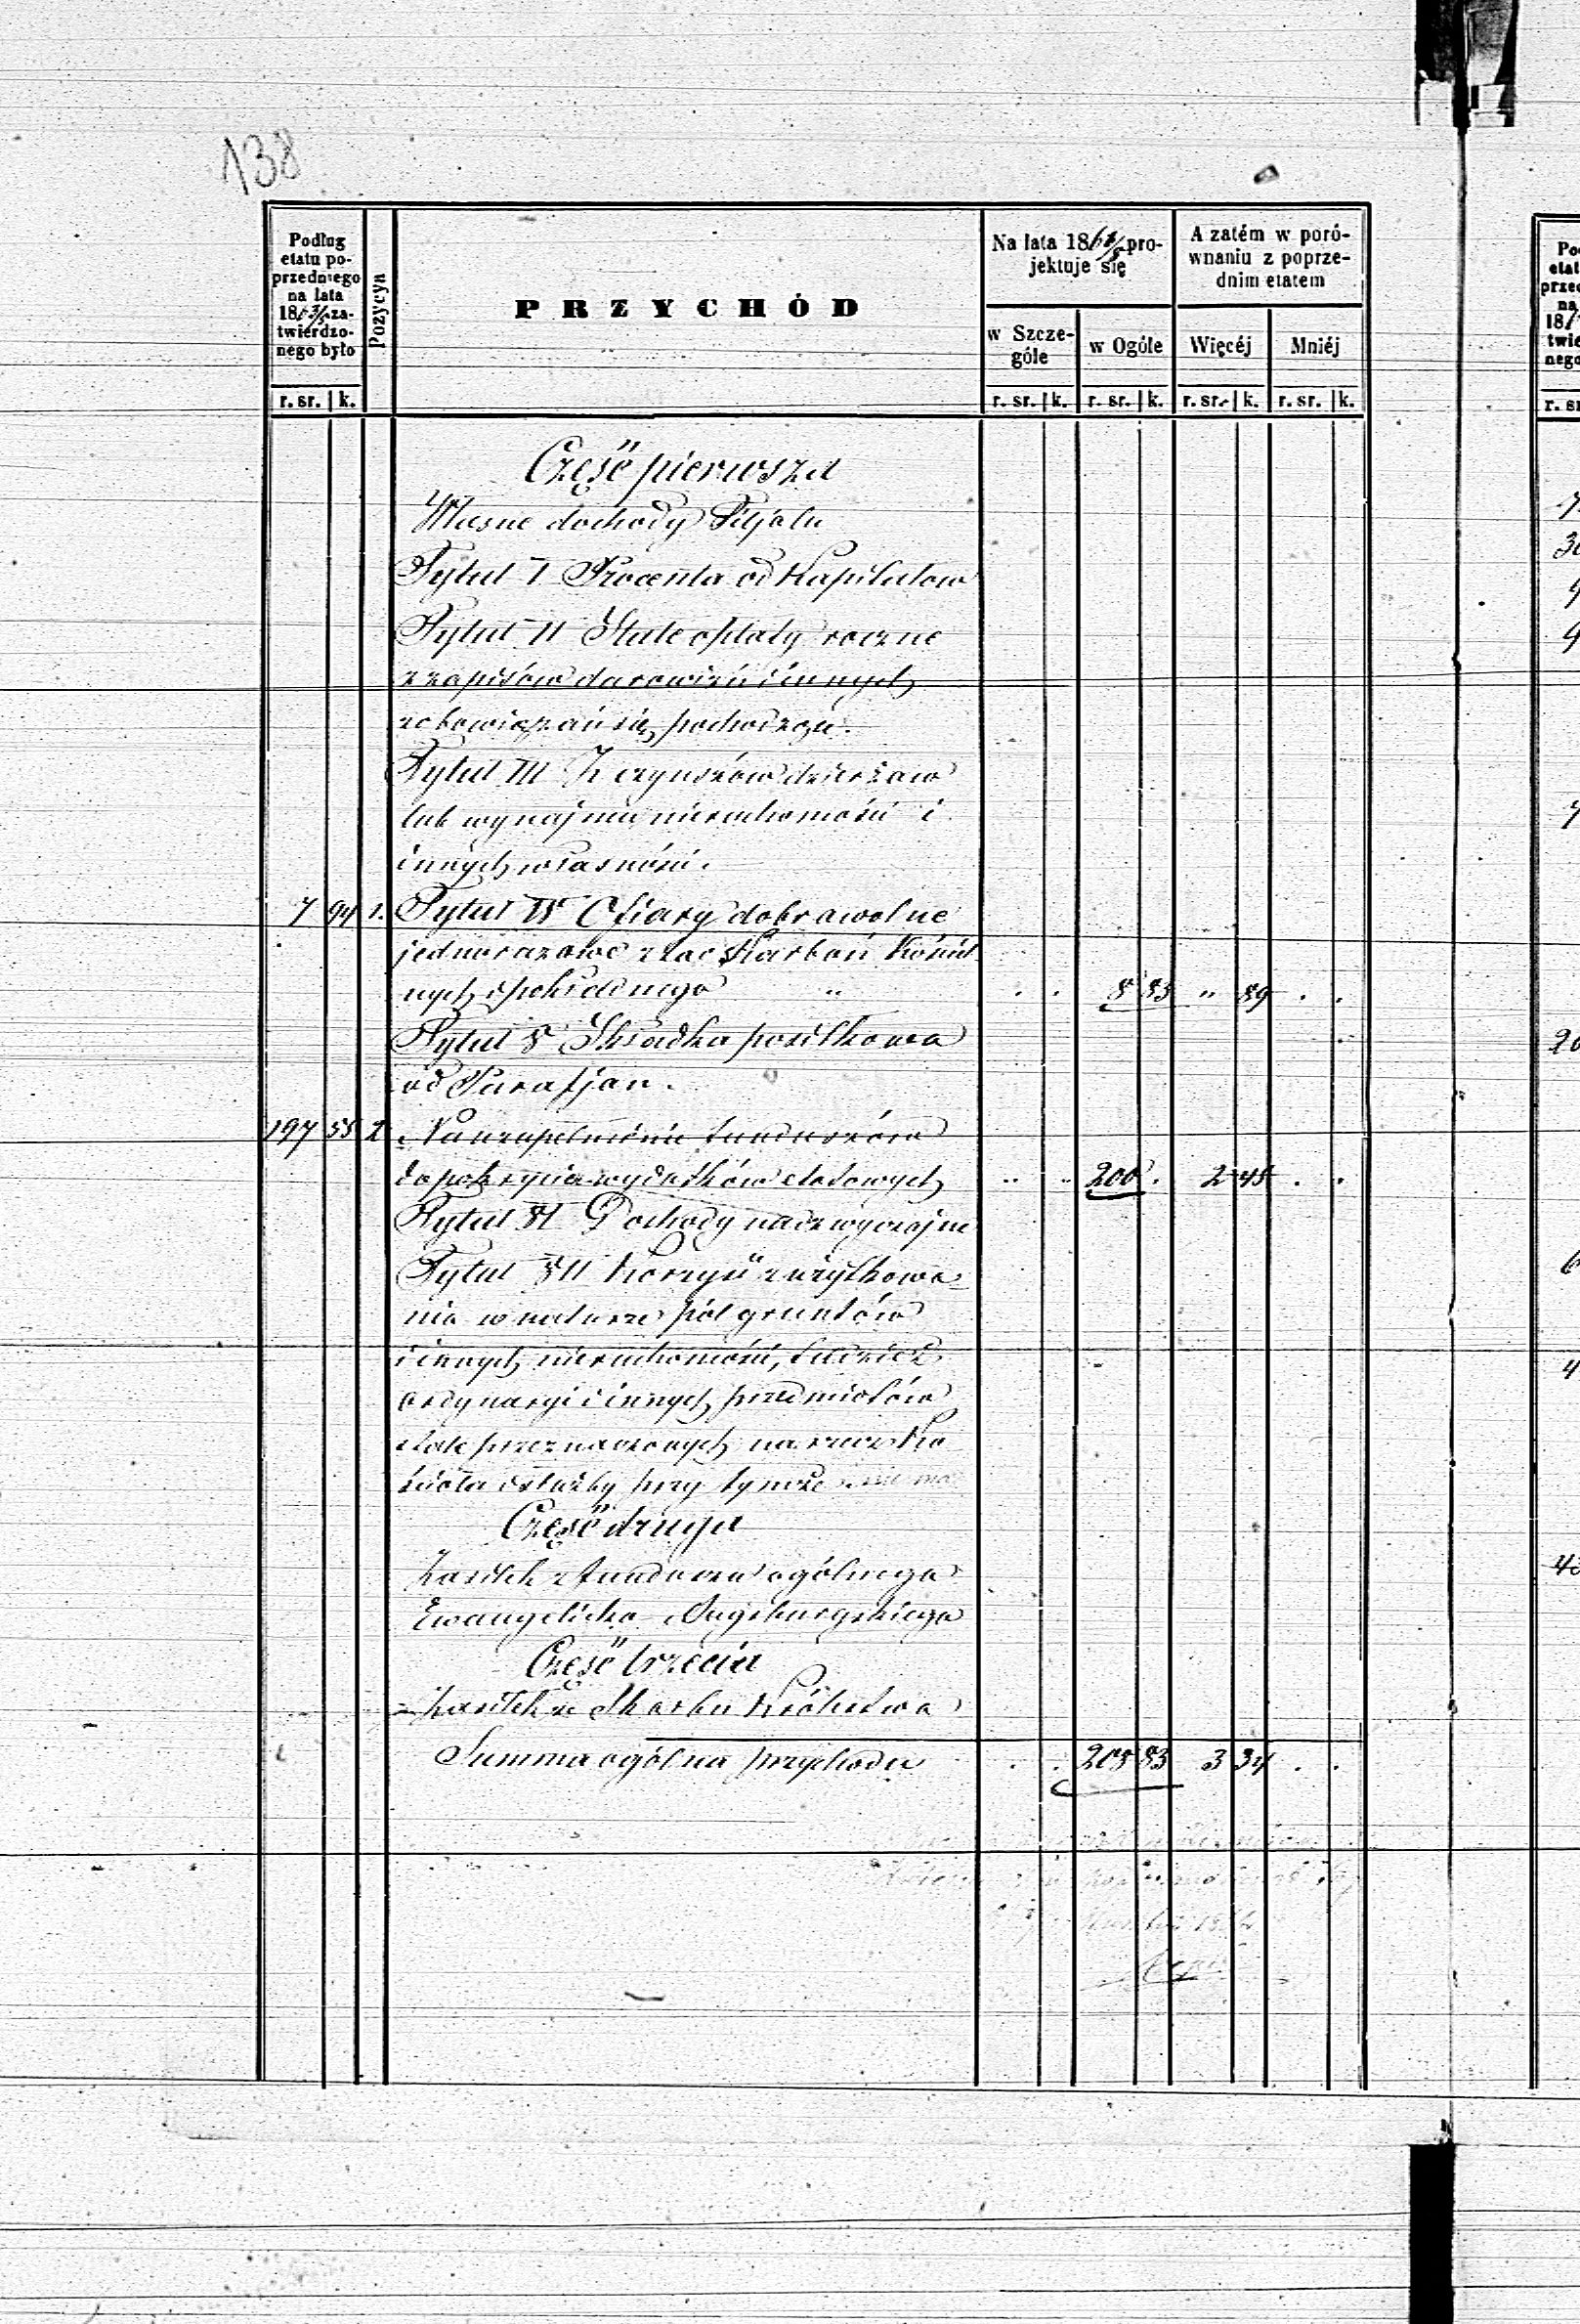 138
Podług etatu poprzedniego na lata 186 zatwierdzonego było
Pozycya
PRZYCHÓD
Na lata 186 projektuje się
A zatém w porównaniu z poprzednim etatem
w Szczególe
w Ogóle
Więcéj
Mniéj
r. sr. k. r. sr. k. r. sr. k. r. sr. k. r. sr. k.
Część pierwsza
Własne dochody Filjału
Tytuł I Procenta od Kapitałow
Tytuł II Stałe opłaty roczne
z zapisów darowizn i innych
zobowiązań się pochodzące.
Tytuł III Z czynszów dzierżaw
lub wynajmu nieruchomości i
innych własności.
7 94 1. Tytuł IV Ofiary dobrawolne
jednorazowe z tac Skarbon Kościel
nych i pokładnego 8 83 " 89
Tytuł V Składka posiłkowa
od Parafjan.
197 55 2 Na uzupełnienie funduszów
do pokrycia wydatków etatowych 200 . 2 45
Tytuł VI Dochody nadzwyczajne
Tytuł VII Korzyść z użytkowa
nia w naturze pól gruntów
i innych nieruchomości, tudzież
ordynaryi i innych przedmiotów
stale przeznaczonych na rzecz Ko
ścioła i służby przy tymże nie ma
Część druga
Zasiłek z funduszu ogólnego
Ewangelicko Augsburgskiego
Część trzecia
Zasiłek ze Skarbu Królestwa
Summa ogólna przychodu 208 83 3 34